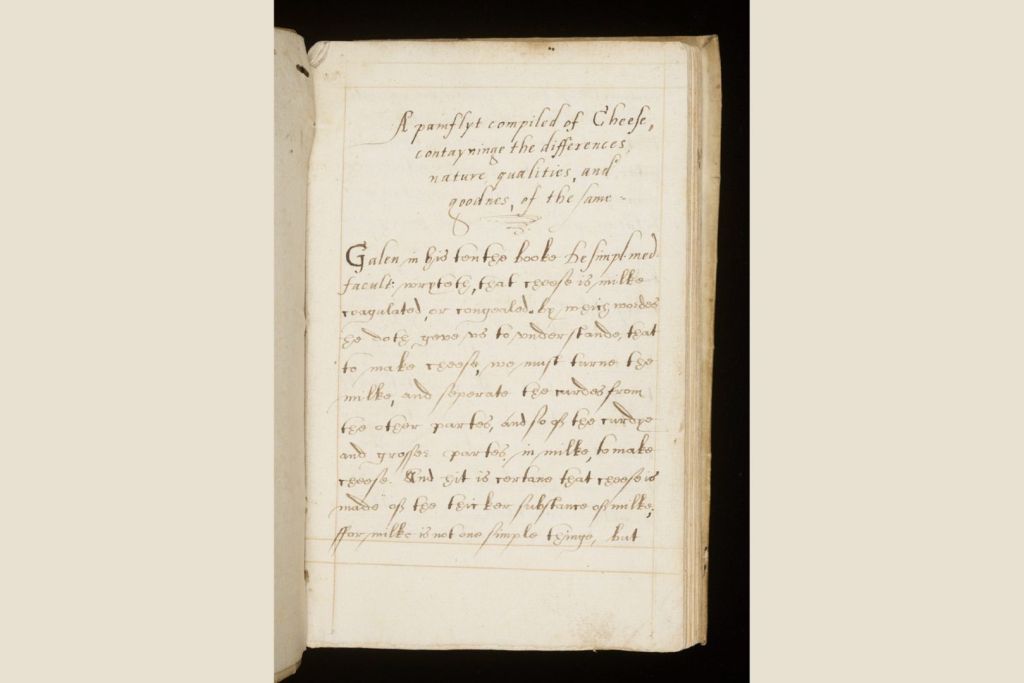 A pamflyt compiled of Cheese,
contayninge the differences,
nature, qualities, and
goodnes, of the same.
Galen in his tenthe booke De simpl: med:
facult: wryteth, that cheese is milke
coagulated, or congealed. by which wordes
he doth geve us to understande, that
to make cheese, we must turne the
milke, and seperate the curdes from
the other partes, and so of the curdye
and grosser partes in milke, to make
cheese. And hit is certane that cheese is
made of the thicker substance of milke,
ffor milke is not one simple thinge, but